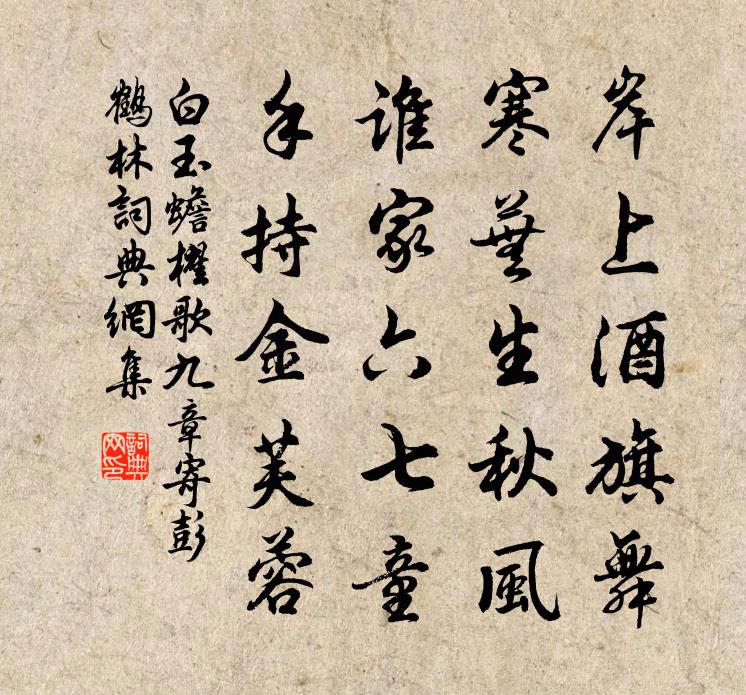 岸上酒旗舞
寒蕪生秋風
誰家六七童
手持金芙蓉
白玉蟾櫂歌九章寄彭
鶴林詞典網集
詞典網印